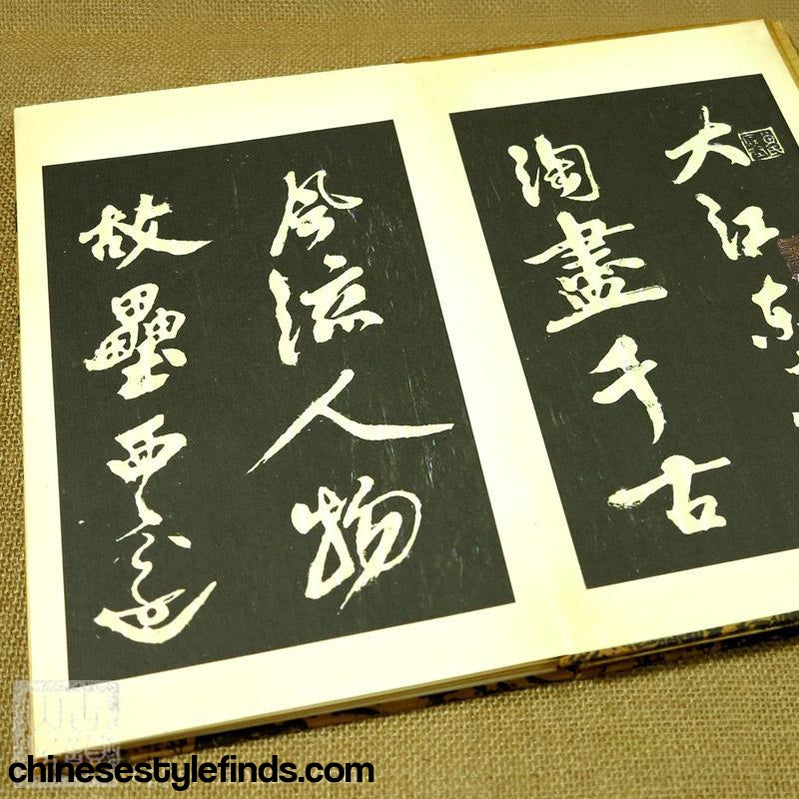 大江东
淘盡千古
風流人物
故壘西邊
chinesestylefinds.com